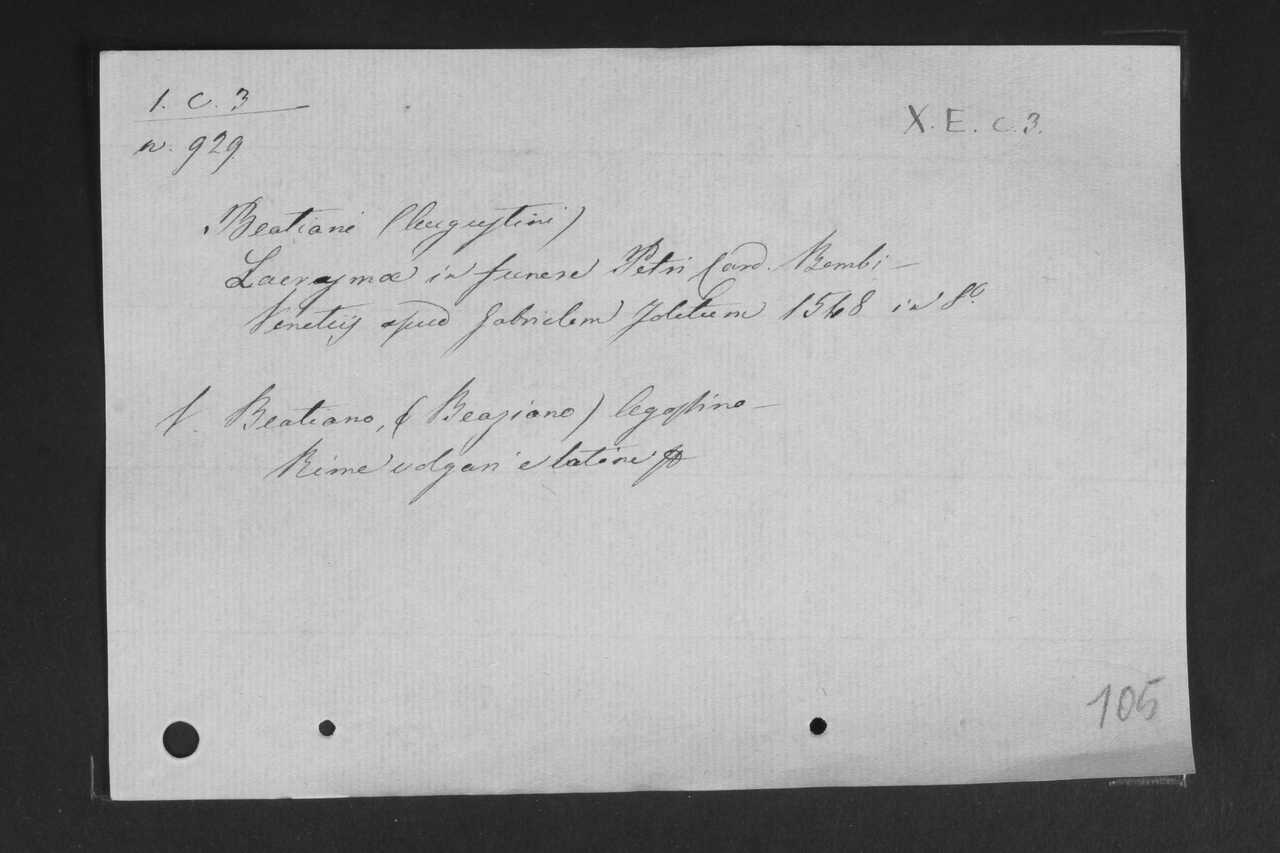 1. C. 3
X. E. c. 3.
n. 929
Beatiani (Augustini)
Lacrymæ in funere Petri Card. Bembi —
Venetiis apud Gabrielem Jolitum 1548 in 8.º
V. Beatiano, (Beaziano) Agostino —
Rime volgari e latine
105